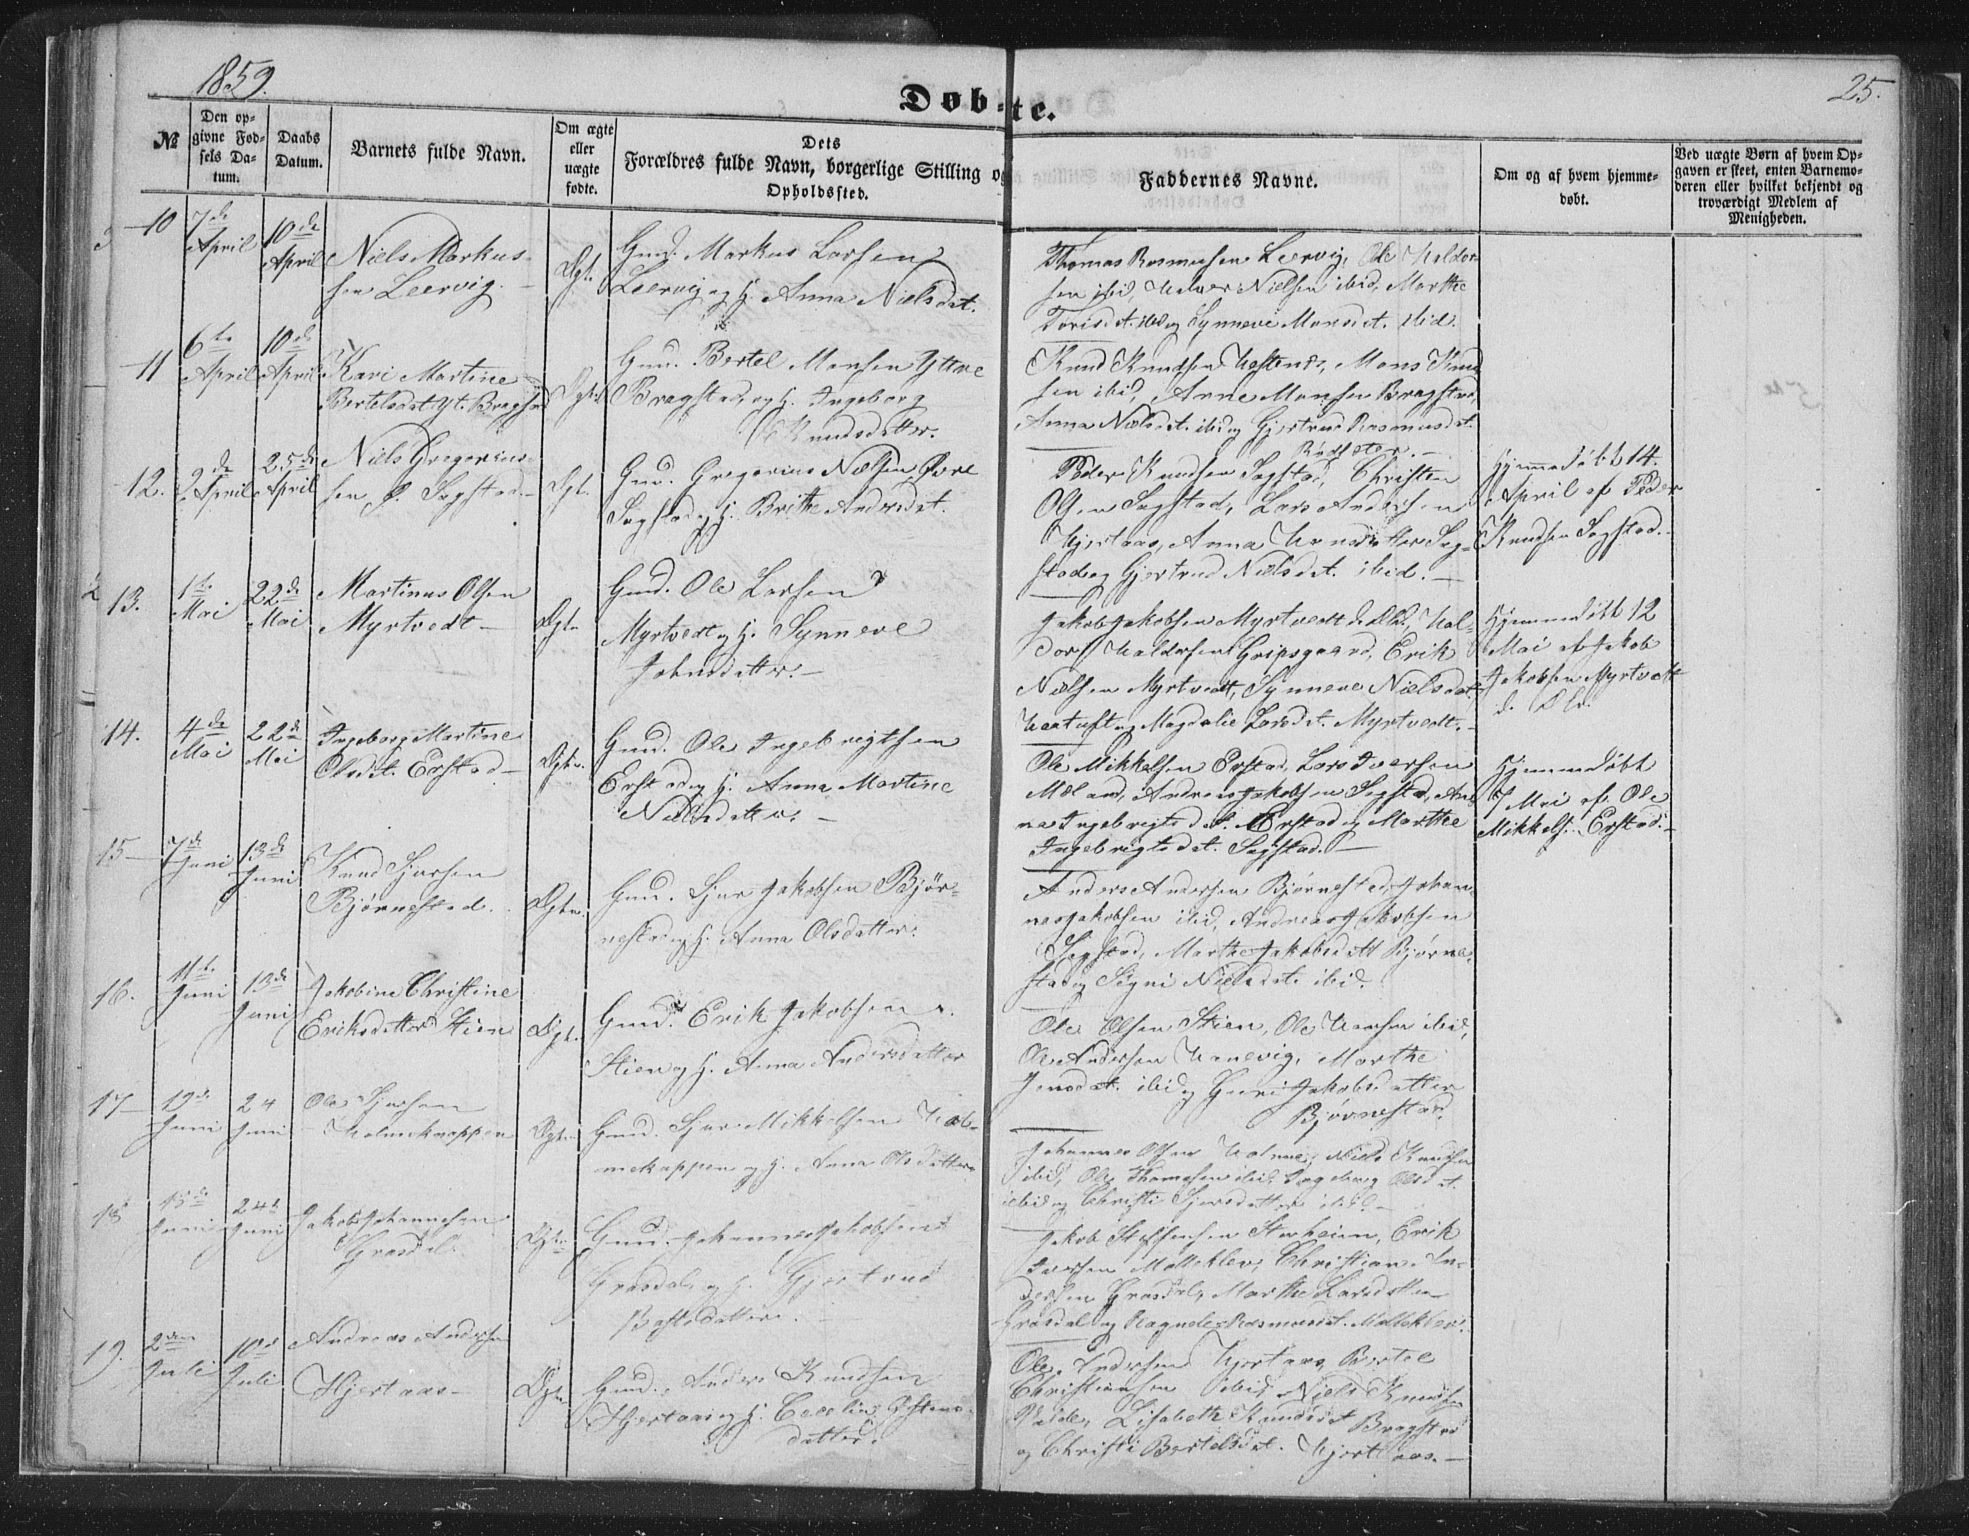 1859.
25.
Døbte.
№
Den opgivne Fødsels Datum.
Daabs Datum.
Barnets fulde Navn.
Om ægte eller uægte fødte.
Dets Forældres fulde Navn, borgerlige Stilling og Opholdssted.
Faddernes Navne.
Om og af hvem hjemmedøbt.
Ved uægte Børn af hvem Opgaven er skeet, enten Barnemoderen eller hvilket bekjendt og troværdigt Medlem af Menigheden.
10
7de April
10de April
Niels Markus-
sen Leervig.
Ægt.
Gmd. Markus Larsen
Leervig og H. Anna Nielsdat.
Thomas Rasmussen Leervig, Ole Haldor-
sen ibid, Halvor Nielsen ibid, Marthe
Torisdat. ibid og Synneve Monsdat. ibid.
11
6te April
10de April
Kari Martine
Bertelsdat. Yt. Bragstad
Ægte.
Gmd. Bertel Monsen Yttre
Bragstad, og H. Ingeborg
Knudsdatter.
Knud Knudsen Hestenes, Mons Knud-
sen ibid, Arne Monsen Bragstad,
Anna Nielsdat. ibid og Gjertrud Rasmusdat.
Rødseter.
12.
2de April
25de April
Niels Gregorius-
sen Ø. Sagstad.
Ægt.
Gmd. Gregorius Nielsen Øvre
Sagstad og H. Brithe Andersdat.
Peder Knudsen Sagstad, Christen
Olsen Sagstad, Lars Andersen
Hjertaas, Anna Hansdatter Sag-
stad og Gjertrud Nielsdat. ibid.
Hjemmedøbt 14.
April af Peder
Knudsen Sagstad.
13.
1te Mai
22de Mai
Martinus Olsen
Myrtvedt
Ægte
Gmd. Ole Larsen
Myrtvedt og H. Synneve
Johnsdatter.
Jakob Jakobsen Myrtvedt d. Æld., Hal-
dor Haldorsen Gripsgaard, Erik
Nielsen Myrtvedt, Synneve Nielsdat.
Hartuft og Magdalie Larsdat. Myrtvedt.
Hjemmedøbt 12
Mai af Jakob
Jakobsen Myrtvedt
d. Æld.
14.
4de Mai
22de Mai
Ingeborg Martine
Olsdat. Erstad
Ægte.
Gmd. Ole Ingebrigtsen
Erstad og H. Anna Martine
Nielsdatter.
Ole Mikkelsen Erstad, Lars Iversen
Mæland, Andreas Jakobsen Sagstad, An-
na Ingebrigtsdat. Erstad og Marthe
Ingebrigtsdat. Sagstad.
Hjemmedøbt
7 Mai af Ole
Mikkels. Erstad.
15
7de Juni
13de Juni
Knud Sjursen
Bjørnestad.
Ægte.
Gmd. Sjur Jakobsen Bjør-
nestad og H. Anna Olsdatter.
Anders Andersen Bjørnestad, Johan-
nes Jakobsen ibid, Andreas Jakobsen
Sagstad, Marthe Jakobsdatt Bjørne-
stad og Signi Nielsdat. ibid.
16.
11te Juni
13de Juni
Jakobine Christine
Eriksdatter Stien
Ægt.
Gmd. Erik Jakobsen
Stien og H. Anna Andersdatter
Ole Olsen Stien, Ole Hansen ibid,
Ole Andersen Hanevig, Marthe
Jensdat. ibid og Guri Jakobsdatter
Bjørnestad.
17
19de Juni
24 Juni
Ole Sjursen
Holmeknappen
Ægte.
Gmd. Sjur Mikkelsen Hol-
meknappen og H. Anna Olsdatter
Johannes Olsen Holme, Niels Knudsen
ibid, Ole Thomasen ibid, Ingeborg Olsdat.
ibid og Christi Sjursdatter ibid.
18
15de Juni
24de Juni
Jakob Johannesen
Græsdal.
Ægte.
Gmd. Johannes Jakobsen
Græsdal, og H. Gjertrud
Jakob Steffensen Storheim, Erik
Iversen Molleklev, Christian An-
dersen Græsdal, Marthe Larsdatter
Græsdal og Ragnele Rasmusdt. Molleklev.
19.
2den Juli
10de Juli
Andreas Andersen
Hjertaas
Ægte
Gmd. Anders Knudsen
Hjertaas og H. Cecelia Østens-
datter.
Ole Andersen Hjertaas, Bertel
Christiansen ibid, Niels Knudsen
Lisabeth Knudsdat Bragstad
og Christi Bertelsdat. Hjertaas.